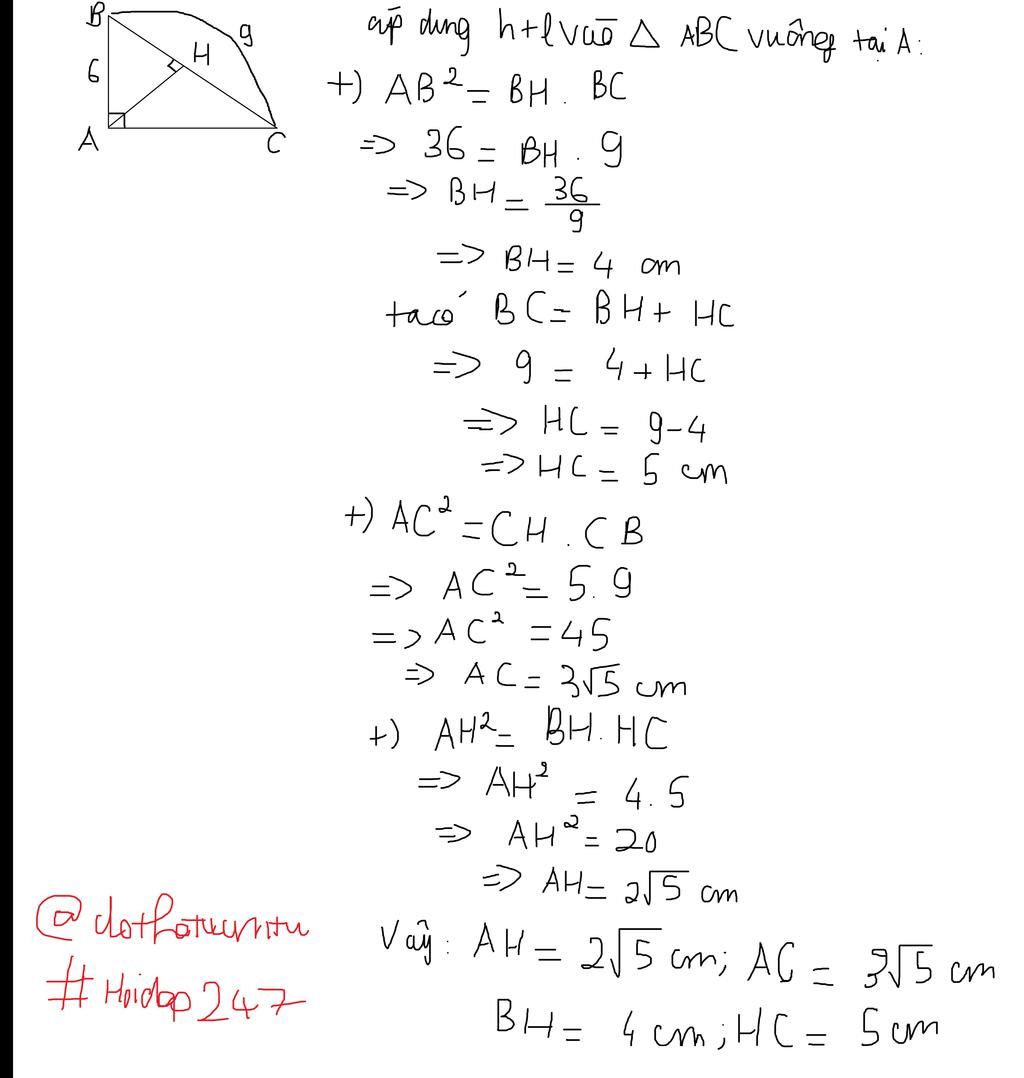 B
9
H
6
A
C
áp dụng h+l vào △ ABC vuông tại A:
+) AB² = BH . BC
=> 36 = BH . 9
=> BH = 36/9
=> BH = 4 cm
ta có BC = BH + HC
=> 9 = 4 + HC
=> HC = 9-4
=> HC = 5 cm
+) AC² = CH . CB
=> AC² = 5.9
=> AC² = 45
=> AC = 3√5 cm
+) AH² = BH.HC
=> AH² = 4.5
=> AH² = 20
=> AH = 2√5 cm
Vậy: AH = 2√5 cm; AC = 3√5 cm
BH = 4 cm; HC = 5 cm
#Hoidap247